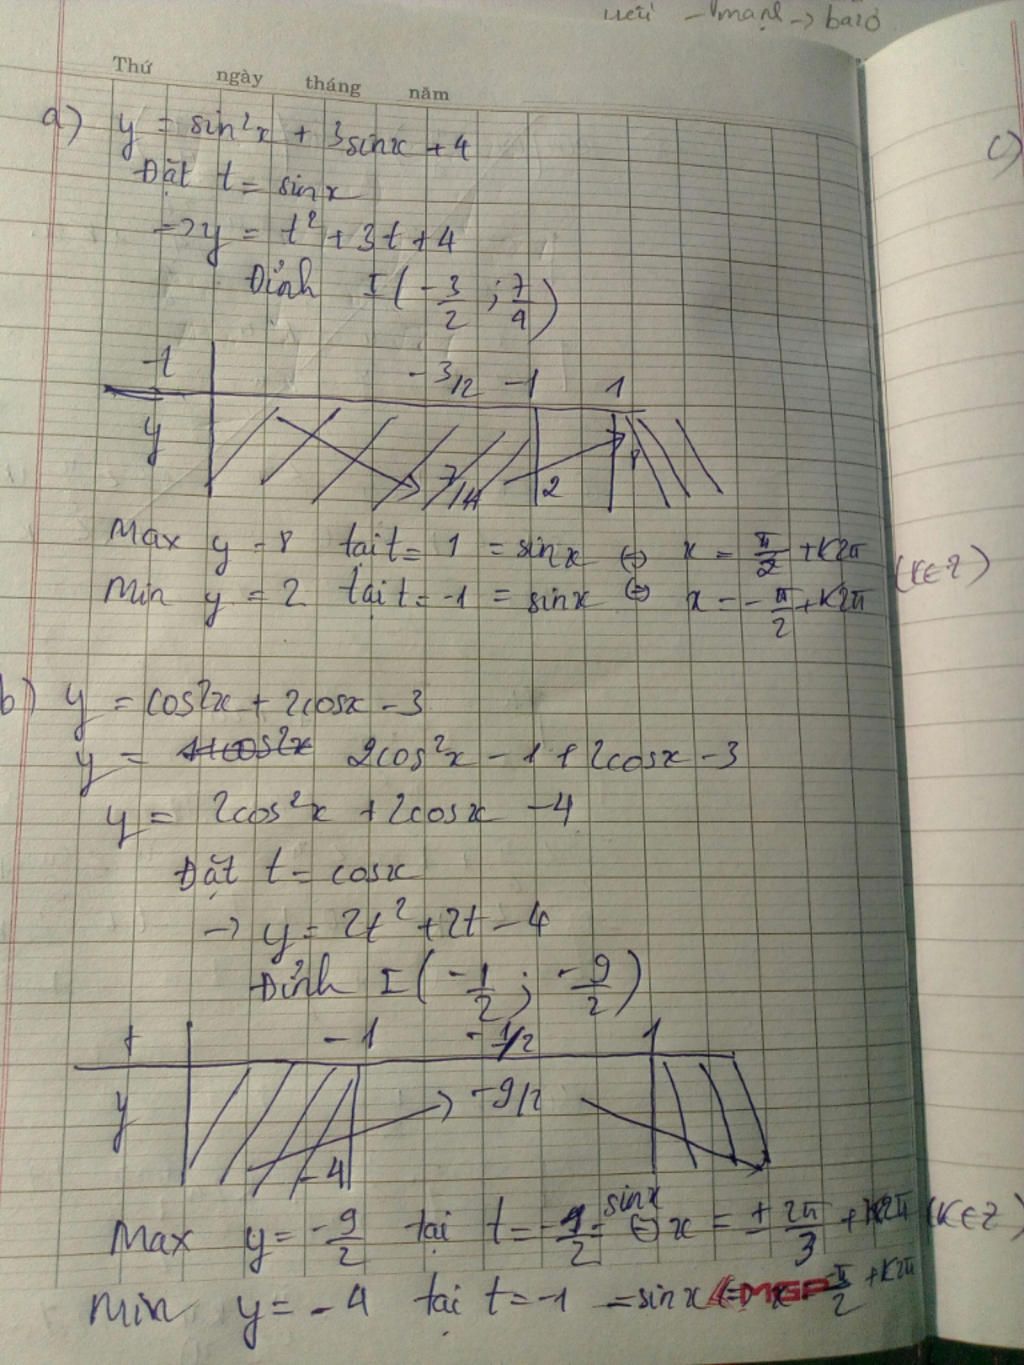 nếu → mạnh → bazơ
Thứ ngày tháng năm
a) y = sin²x + 3sinx + 4
c)
Đặt t = sinx
=> y = t² + 3t + 4
Đỉnh I(-3/2 ; 7/4)
t -3/2 -1 1
y 7/4 2 8
Max y = 8 tại t = 1 = sinx ⇔ x = π/2 + K2π
(K∈Z)
Min y = 2 tại t = -1 = sinx ⇔ x = -π/2 + K2π
b) y = cos2x + 2cosx - 3
y = 2cos²x - 1 + 2cosx - 3
y = 2cos²x + 2cosx - 4
Đặt t = cosx
→ y = 2t² + 2t - 4
Đỉnh I(-1/2 ; -9/2)
t -1 -1/2 1
y -4 -9/2
Max y = -9/2 tại t = -9/2 = sinx ⇔ x = ± 2π/3 + K2π (K∈Z)
Min y = -4 tại t = -1 = sinx ⇔ x -π/2 + K2π